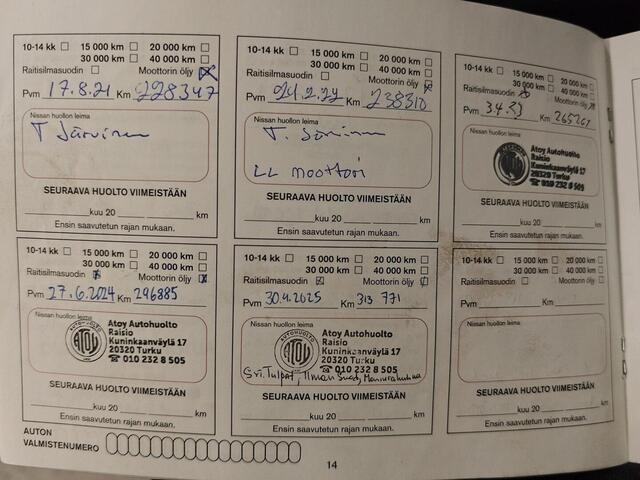 10-14 kk 15 000 km 20 000 km
30 000 km 40 000 km
Raitisilmasuodin Moottorin öljy
Pvm 17.8.21 Km 228347
Nissan huollon leima
T Järvinen
SEURAAVA HUOLTO VIIMEISTÄÄN
kuu 20 km
Ensin saavutetun rajan mukaan.
10-14 kk 15 000 km 20 000 km
30 000 km 40 000 km
Raitisilmasuodin Moottorin öljy
Pvm 24.2.22 Km 238310
Nissan huollon leima
T.
LL moottori
SEURAAVA HUOLTO VIIMEISTÄÄN
kuu 20 km
Ensin saavutetun rajan mukaan.
10-14 kk 15 000 km 20 000 km
30 000 km 40 000 km
Raitisilmasuodin Moottorin öljy
Pvm 3.4.23 Km 265267
Nissan huollon leima
Atoy Autohuolto
Raisio
Kuninkaanväylä 17
20320 Turku
☎ 010 232 8 505
SEURAAVA HUOLTO VIIMEISTÄÄN
kuu 20 km
Ensin saavutetun rajan mukaan.
10-14 kk 15 000 km 20 000 km
30 000 km 40 000 km
Raitisilmasuodin Moottorin öljy
Pvm 27.6.2024 Km 296885
Nissan huollon leima
AUTOHUOLTO
ATOY
Atoy Autohuolto
Raisio
Kuninkaanväylä 17
20320 Turku
☎ 010 232 8 505
SEURAAVA HUOLTO VIIMEISTÄÄN
kuu 20 km
Ensin saavutetun rajan mukaan.
10-14 kk 15 000 km 20 000 km
30 000 km 40 000 km
Raitisilmasuodin Moottorin öljy
Pvm 30.4.2025 Km 313 771
Nissan huollon leima
ATOY
Atoy Autohuolto
Raisio
Kuninkaanväylä 17
20320 Turku
☎ 010 232 8 505
SEURAAVA HUOLTO VIIMEISTÄÄN
kuu 20 km
Ensin saavutetun rajan mukaan.
10-14 kk 15 000 km 20 000 km
30 000 km 40 000 km
Raitisilmasuodin Moottorin öljy
Pvm Km
Nissan huollon leima
SEURAAVA HUOLTO VIIMEISTÄÄN
kuu 20 km
Ensin saavutetun rajan mukaan.
AUTON
VALMISTENUMERO
14